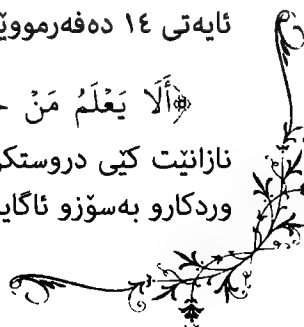 ئایەتی ١٤ دەفەرمووێ
﴿أَلَا يَعْلَمُ مَنْ
نازانێت کێی دروستکر
وردکارو بەسۆزو ئاگای